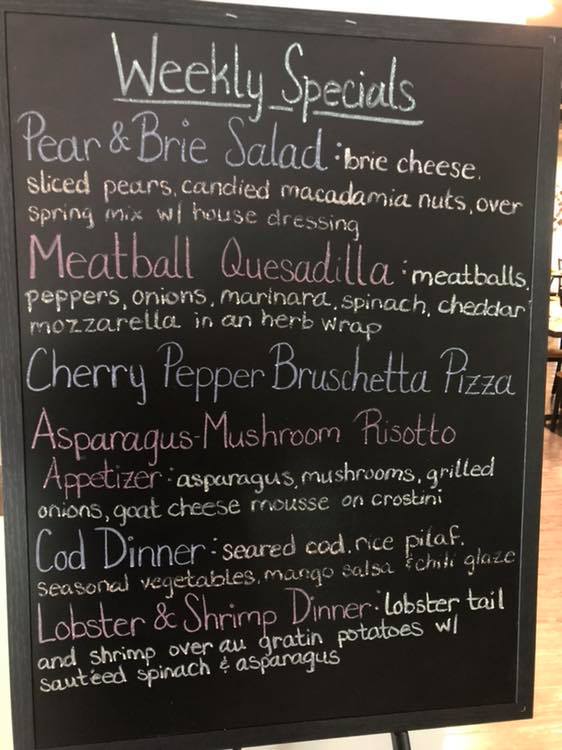 Weekly Specials
Pear & Brie Salad: brie cheese,
sliced pears, candied macadamia nuts, over
spring mix w/ house dressing
Meatball Quesadilla: meatballs,
peppers, onions, marinara, spinach, cheddar
mozzarella in an herb wrap
Cherry Pepper Bruschetta Pizza
Asparagus-Mushroom Risotto
Appetizer: asparagus, mushrooms, grilled
onions, goat cheese mousse on crostini
Cod Dinner: seared cod, rice pilaf,
seasonal vegetables, mango salsa & chili glaze
Lobster & Shrimp Dinner: lobster tail
and shrimp over au gratin potatoes w/
sauteéd spinach & asparagus